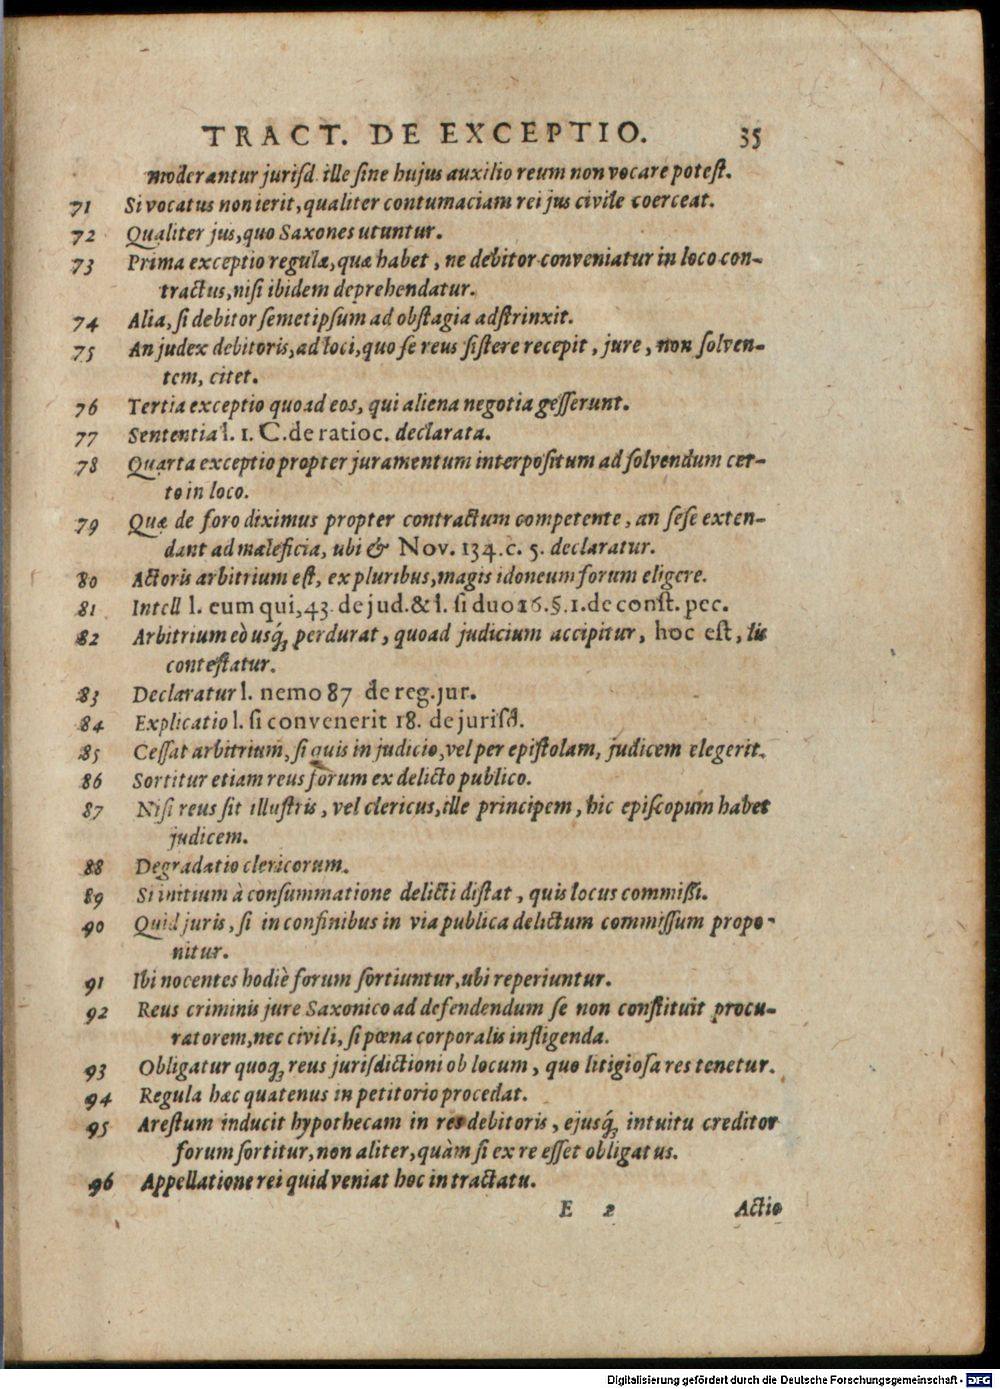 TRACT. DE EXCEPTIO. 35
moderantur jurisd. ille sine hujus auxilio reum non vocare potest.
71 Si vocatus non ierit, qualiter contumaciam rei jus civile coerceat.
72 Qualiter jus, quo Saxones utuntur.
73 Prima exceptio regulæ, quæ habet, ne debitor conveniatur in loco con-
tractus, nisi ibidem deprehendatur.
74 Alia, si debitor semetipsum ad obstagia adstrinxit.
75 An judex debitoris, ad loci, quo se reus sistere recepit, jure, non solven-
tem, citet.
76 Tertia exceptio quoad eos, qui aliena negotia gesserunt.
77 Sententia l. 1. C. de ratioc. declarata.
78 Quarta exceptio propter juramentum interpositum ad solvendum cer-
to in loco.
79 Quæ de foro diximus propter contractum competente, an sese exten-
dant ad maleficia, ubi & Nov. 134. c. 5. declaratur.
80 Actoris arbitrium est, ex pluribus, magis idoneum forum eligere.
81 Intell l. eum qui, 43. de jud. & l. si duo 16. §. 1. de const. pec.
82 Arbitrium eò usq́ꝫ perdurat, quoad judicium accipitur, hoc est, lis
contestatur.
83 Declaratur l. nemo 87 de reg. jur.
84 Explicatio l. si convenerit 18. de jurisd.
85 Cessat arbitrium, si quis in judicio, vel per epistolam, judicem elegerit.
86 Sortitur etiam reus forum ex delicto publico.
87 Nisi reus sit illustris, vel clericus, ille principem, hic episcopum habet
judicem.
88 Degradatio clericorum.
89 Si initium à consummatione delicti distat, quis locus commissi.
90 Quid juris, si in confinibus in via publica delictum commissum propo-
nitur.
91 Ibi nocentes hodiè forum sortiuntur, ubi reperiuntur.
92 Reus criminis jure Saxonico ad defendendum se non constituit procu-
ratorem, nec civili, si pœna corporalis infligenda.
93 Obligatur quoqꝫ reus jurisdictioni ob locum, quo litigiosa res tenetur.
94 Regula hæc quatenus in petitorio procedat.
95 Arestum inducit hypothecam in res debitoris, ejusq́ꝫ intuitu creditor
forum sortitur, non aliter, quàm si ex re esset obligatus.
96 Appellatione rei quid veniat hoc in tractatu.
E 2 Actio
Digitalisierung gefördert durch die Deutsche Forschungsgemeinschaft - DFG